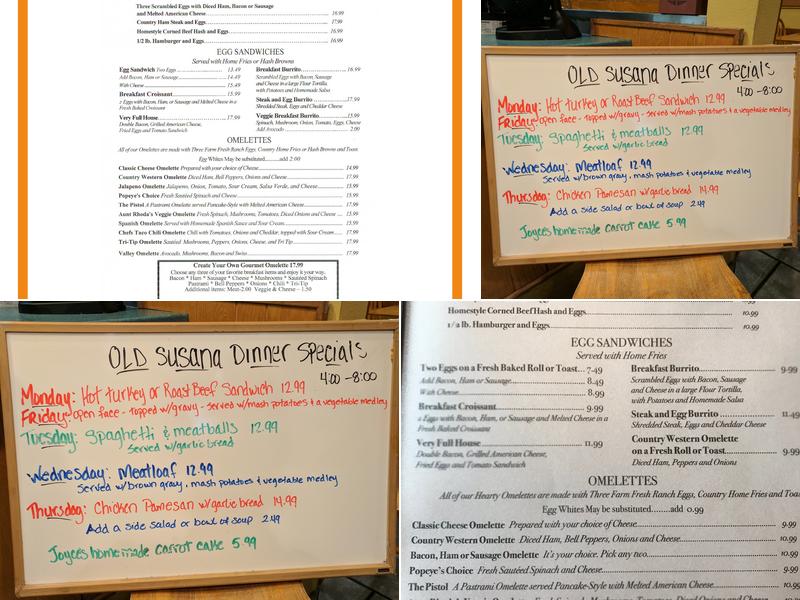 Three Scrambled Eggs with Diced Ham, Bacon or Sausage
and Melted American Cheese 16.99
Country Ham Steak and Eggs 17.99
Homestyle Corned Beef Hash and Eggs 16.99
1/2 lb. Hamburger and Eggs 16.99
EGG SANDWICHES
Served with Home Fries or Hash Browns
Egg Sandwich Two Eggs 13.49
Add Bacon, Ham or Sausage 14.49
With Cheese 15.49
Breakfast Croissant 15.99
2 Eggs with Bacon, Ham, or Sausage and Melted Cheese in a
Fresh Baked Croissant
Very Full House 17.99
Double Bacon, Grilled American Cheese,
Fried Eggs and Tomato Sandwich
Breakfast Burrito 16.99
Scrambled Eggs with Bacon, Sausage
and Cheese in a large Flour Tortilla,
with Potatoes and Homemade Salsa
Steak and Egg Burrito 17.99
Shredded Steak, Eggs and Cheddar Cheese
Veggie Breakfast Burrito 15.99
Spinach, Mushroom, Onion, Tomato, Eggs, Cheese
Add Avocado 2.00
OMELETTES
All of our Omelettes are made with Three Farm Fresh Ranch Eggs, Country Home Fries or Hash Browns and Toast
Egg Whites May be substituted add 2.00
Classic Cheese Omelette Prepared with your choice of Cheese 14.99
Country Western Omelette Diced Ham, Bell Peppers, Onions and Cheese 17.99
Jalapeno Omelette Jalapeno, Onion, Tomato, Sour Cream, Salsa Verde, and Cheese 15.99
Popeye's Choice Fresh Sautéed Spinach and Cheese 15.99
The Pistol A Pastrami Omelette served Pancake-Style with Melted American Cheese 17.99
Aunt Rhoda's Veggie Omelette Fresh Spinach, Mushrooms, Tomatoes, Diced Onions and Cheese 15.99
Spanish Omelette Served with Homemade Spanish Sauce and Sour Cream 15.99
Chefs Taco Chili Omelette Chili with Tomatoes, Onions and Cheddar, topped with Sour Cream 17.99
Tri-Tip Omelette Sautéed Mushrooms, Peppers, Onions, Cheese, and Tri Tip 17.99
Valley Omelette Avocado, Mushrooms, Bacon and Swiss 17.99
Create Your Own Gourmet Omelette 17.99
Choose any three of your favorite breakfast items and enjoy it your way.
Bacon * Ham * Sausage * Cheese * Mushrooms * Sautéed Spinach
Pastrami * Bell Peppers * Onions * Chili * Tri-Tip
Additional items: Meat-2.00 Veggie & Cheese – 1.50
OLD SUSANA DINNER SPECIALS
4:00 - 8:00
Monday: Hot turkey or Roast Beef Sandwich 12.99
Friday: open face - topped w/gravy - served w/mash potatoes & a vegetable medley
Tuesday: Spaghetti & meatballs 12.99
Served w/garlic bread
Wednesday: Meatloaf 12.99
Served w/brown gravy, mash potatoes & vegetable medley
Thursday: Chicken Parmesan w/garlic bread 14.99
Add a side salad or bowl of soup 2.49
Joyce's homemade carrot cake 5.99
OLD SUSANA DINNER SPECIALS
4:00 - 8:00
Monday: Hot turkey or Roast Beef Sandwich 12.99
Friday: open face - topped w/gravy - served w/mash potatoes & a vegetable medley
Tuesday: Spaghetti & meatballs 12.99
Served w/garlic bread
Wednesday: Meatloaf 12.99
Served w/brown gravy, mash potatoes & vegetable medley
Thursday: Chicken Parmesan w/garlic bread 14.99
Add a side salad or bowl of soup 2.49
Joyce's homemade carrot cake 5.99
Homestyle Corned Beef Hash and Eggs 10.99
1/2 lb. Hamburger and Eggs 10.99
EGG SANDWICHES
Served with Home Fries
Two Eggs on a Fresh Baked Roll or Toast 7.49
Add Bacon, Ham or Sausage 8.49
With Cheese 8.99
Breakfast Croissant 9.99
2 Eggs with Bacon, Ham, or Sausage and Melted Cheese in a
Fresh Baked Croissant
Very Full House 11.99
Double Bacon, Grilled American Cheese,
Fried Eggs and Tomato Sandwich
Breakfast Burrito 9.99
Scrambled Eggs with Bacon, Sausage
and Cheese in a large Flour Tortilla,
with Potatoes and Homemade Salsa
Steak and Egg Burrito 11.49
Shredded Steak, Eggs and Cheddar Cheese
Country Western Omelette
on a Fresh Roll or Toast 9.99
Diced Ham, Peppers and Onions
OMELETTES
All of our Hearty Omelettes are made with Three Farm Fresh Ranch Eggs, Country Home Fries and Toast
Egg Whites May be substituted add 0.99
Classic Cheese Omelette Prepared with your choice of Cheese 9.99
Country Western Omelette Diced Ham, Bell Peppers, Onions and Cheese 10.99
Bacon, Ham or Sausage Omelette It's your choice. Pick any two. 10.99
Popeye's Choice Fresh Sautéed Spinach and Cheese 9.99
The Pistol A Pastrami Omelette served Pancake-Style with Melted American Cheese 10.99